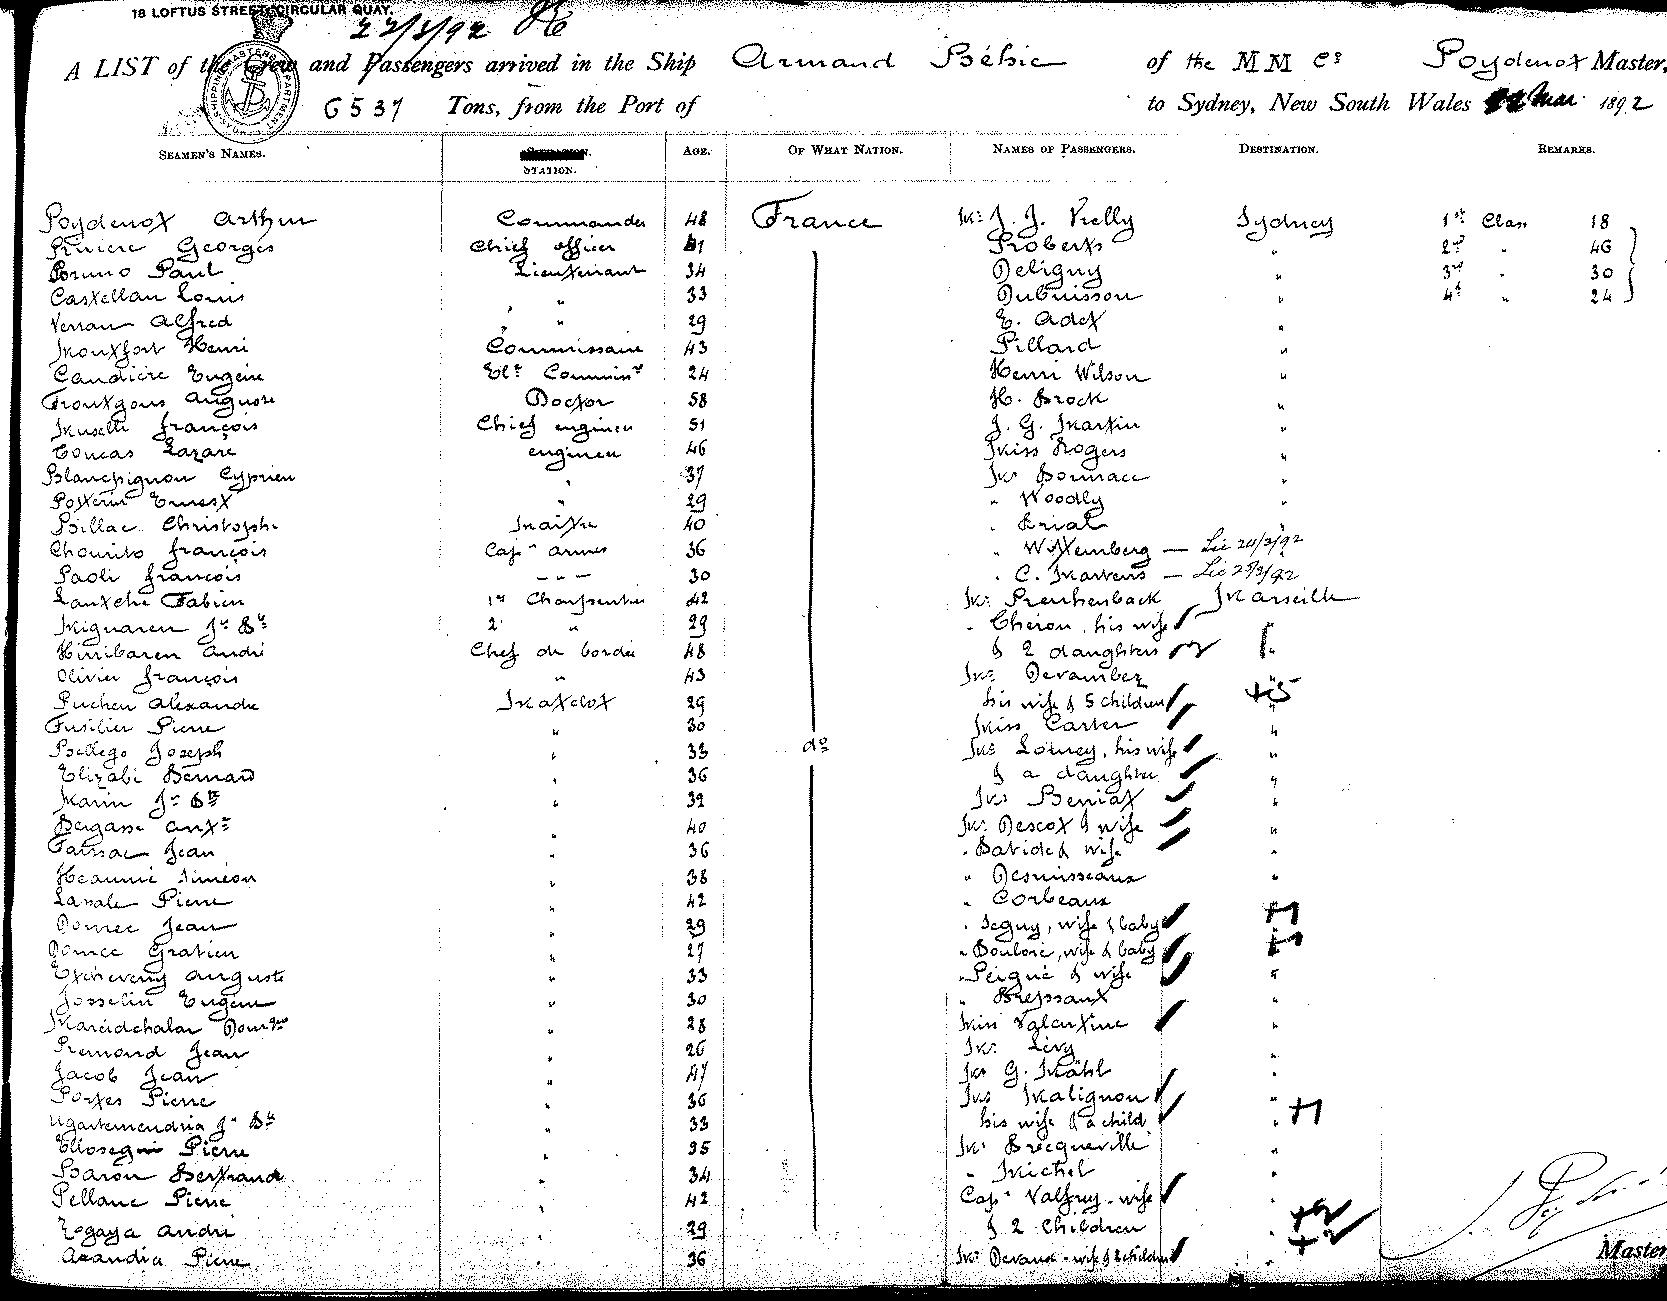 18 LOFTUS STREET, CIRCULAR QUAY.
22/3/92
A LIST of the Crew and Passengers arrived in the Ship Armand Béhic of the M M Cs Poydenot Master,
6537 Tons, from the Port of to Sydney, New South Wales Mar 1892
SEAMEN'S NAMES. STATION. AGE. OF WHAT NATION. NAMES OF PASSENGERS. DESTINATION. REMARKS.
Poydenot Arthur Commander 48 France Mr J. J. Kelly Sydney 1st Class 18
Rivière Georges Chief officer 41 Roberts " 2d " 46
Bruno Paul Lieutenant 34 Deligny " 3rd " 30
Castellan Louis " " 33 Dubuisson " 4th " 24
Verran Alfred " " 29 E. Adet "
Montfort Henri Commissaire 43 Pillard "
Candière Eugène 24 Henri Wilson "
Auguste Doctor 58 H. Brock "
Muselli François Chief engineer 51 J. G. Martin "
Coucas Lazare engineer 46 Miss Rogers "
Blanchignon Cyprien " 37 Mr "
Potterin Ernest " 29 " Woodly "
Billac Christophe Maître 40 " Brial "
François Capne armes 36 " Wittemberg — Lie 24/3/92
Paoli François - - - 30 " C. Martens — Lie 25/3/92
Fabien 1er Charpentier 42 Mr Marseille
Jn Bte 2 " 29 " Chéron, his wife
Hirribaren André Chef de bordée 48 & 2 daughters "
Olivier François " 43 Mr Devambez
Puchen Alexandre Matelot 29 his wife & 5 children +5
Fusilier Pierre " 30 Miss Carter "
Bellego Joseph " 33 do Mr Lorney, his wife "
Elizabi Bernard " 36 & a daughter "
Marin Jn Bte " 32 Mr Beniat "
Bergasse Ante " 40 Mr Descot & wife "
Tarssac Jean " 36 " Batide & wife "
Heaumé Siméon " 38 " Desruisseaux "
Lavale Pierre " 42 " Corbeaux "
Domec Jean " 29 " Seguy, wife & baby +1
Domec Gratien " 27 " Douloré, wife & baby +1
Etcheverry Auguste " 33 " Peigné & wife "
Josselin Eugène " 30 " "
Maridchalar " 28 Miss Valentine "
Remond Jean " 26 Mr Lévy "
Jacob Jean " 47 Mr G. Mähl "
Portes Pierre " 36 Mr Malignon "
Ugartemendria Jn Bte " 33 his wife & a child " +1
Ellosegui Pierre " 35 Mr Brecqueville "
Baron Bertrand " 34 " Michel "
Pellane Pierre " 42 Capne - wife "
André " 29 & 2 children " +2
Arandia Pierre " 36 Mr Devaux - wife & 2 children " +2
Master